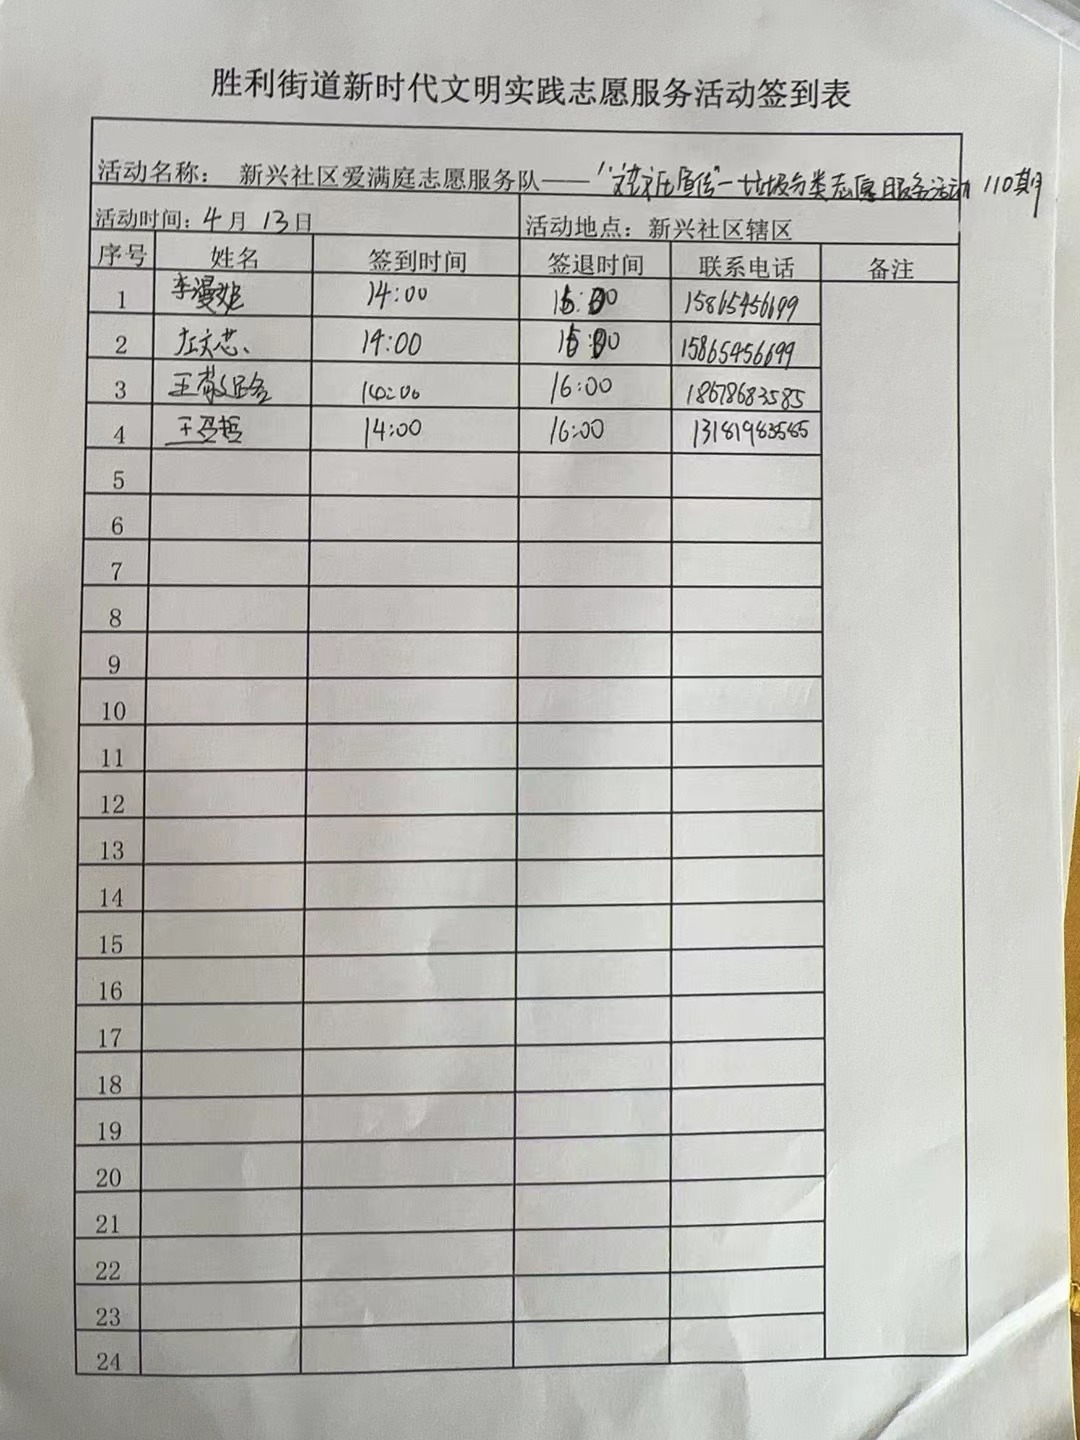 胜利街道新时代文明实践志愿服务活动签到表
活动名称： 新兴社区爱满庭志愿服务队——"宣传"—垃圾分类志愿服务活动 110期
活动时间：4月 13日 活动地点：新兴社区辖区
序号 姓名 签到时间 签退时间 联系电话 备注
1 李漫妮 14:00 16:00 15865456699
2 左文芯 14:00 16:00 15865456699
3 王 14:00 16:00 18678683585
4 王 14:00 16:00 13181983585
5
6
7
8
9
10
11
12
13
14
15
16
17
18
19
20
21
22
23
24